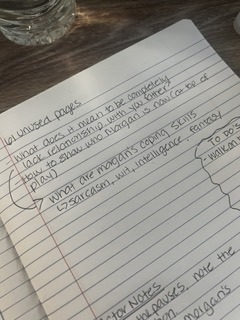 61 unused pages
What does it mean to be completely
lack relationship with your father?
- How to show who morgan is now (at top of
play)
What are morgan's coping skills
↳ sarcasm, wit, intelligence, fantasy
TO DO:
- walk on
Notes
the pauses, note the
morgan's